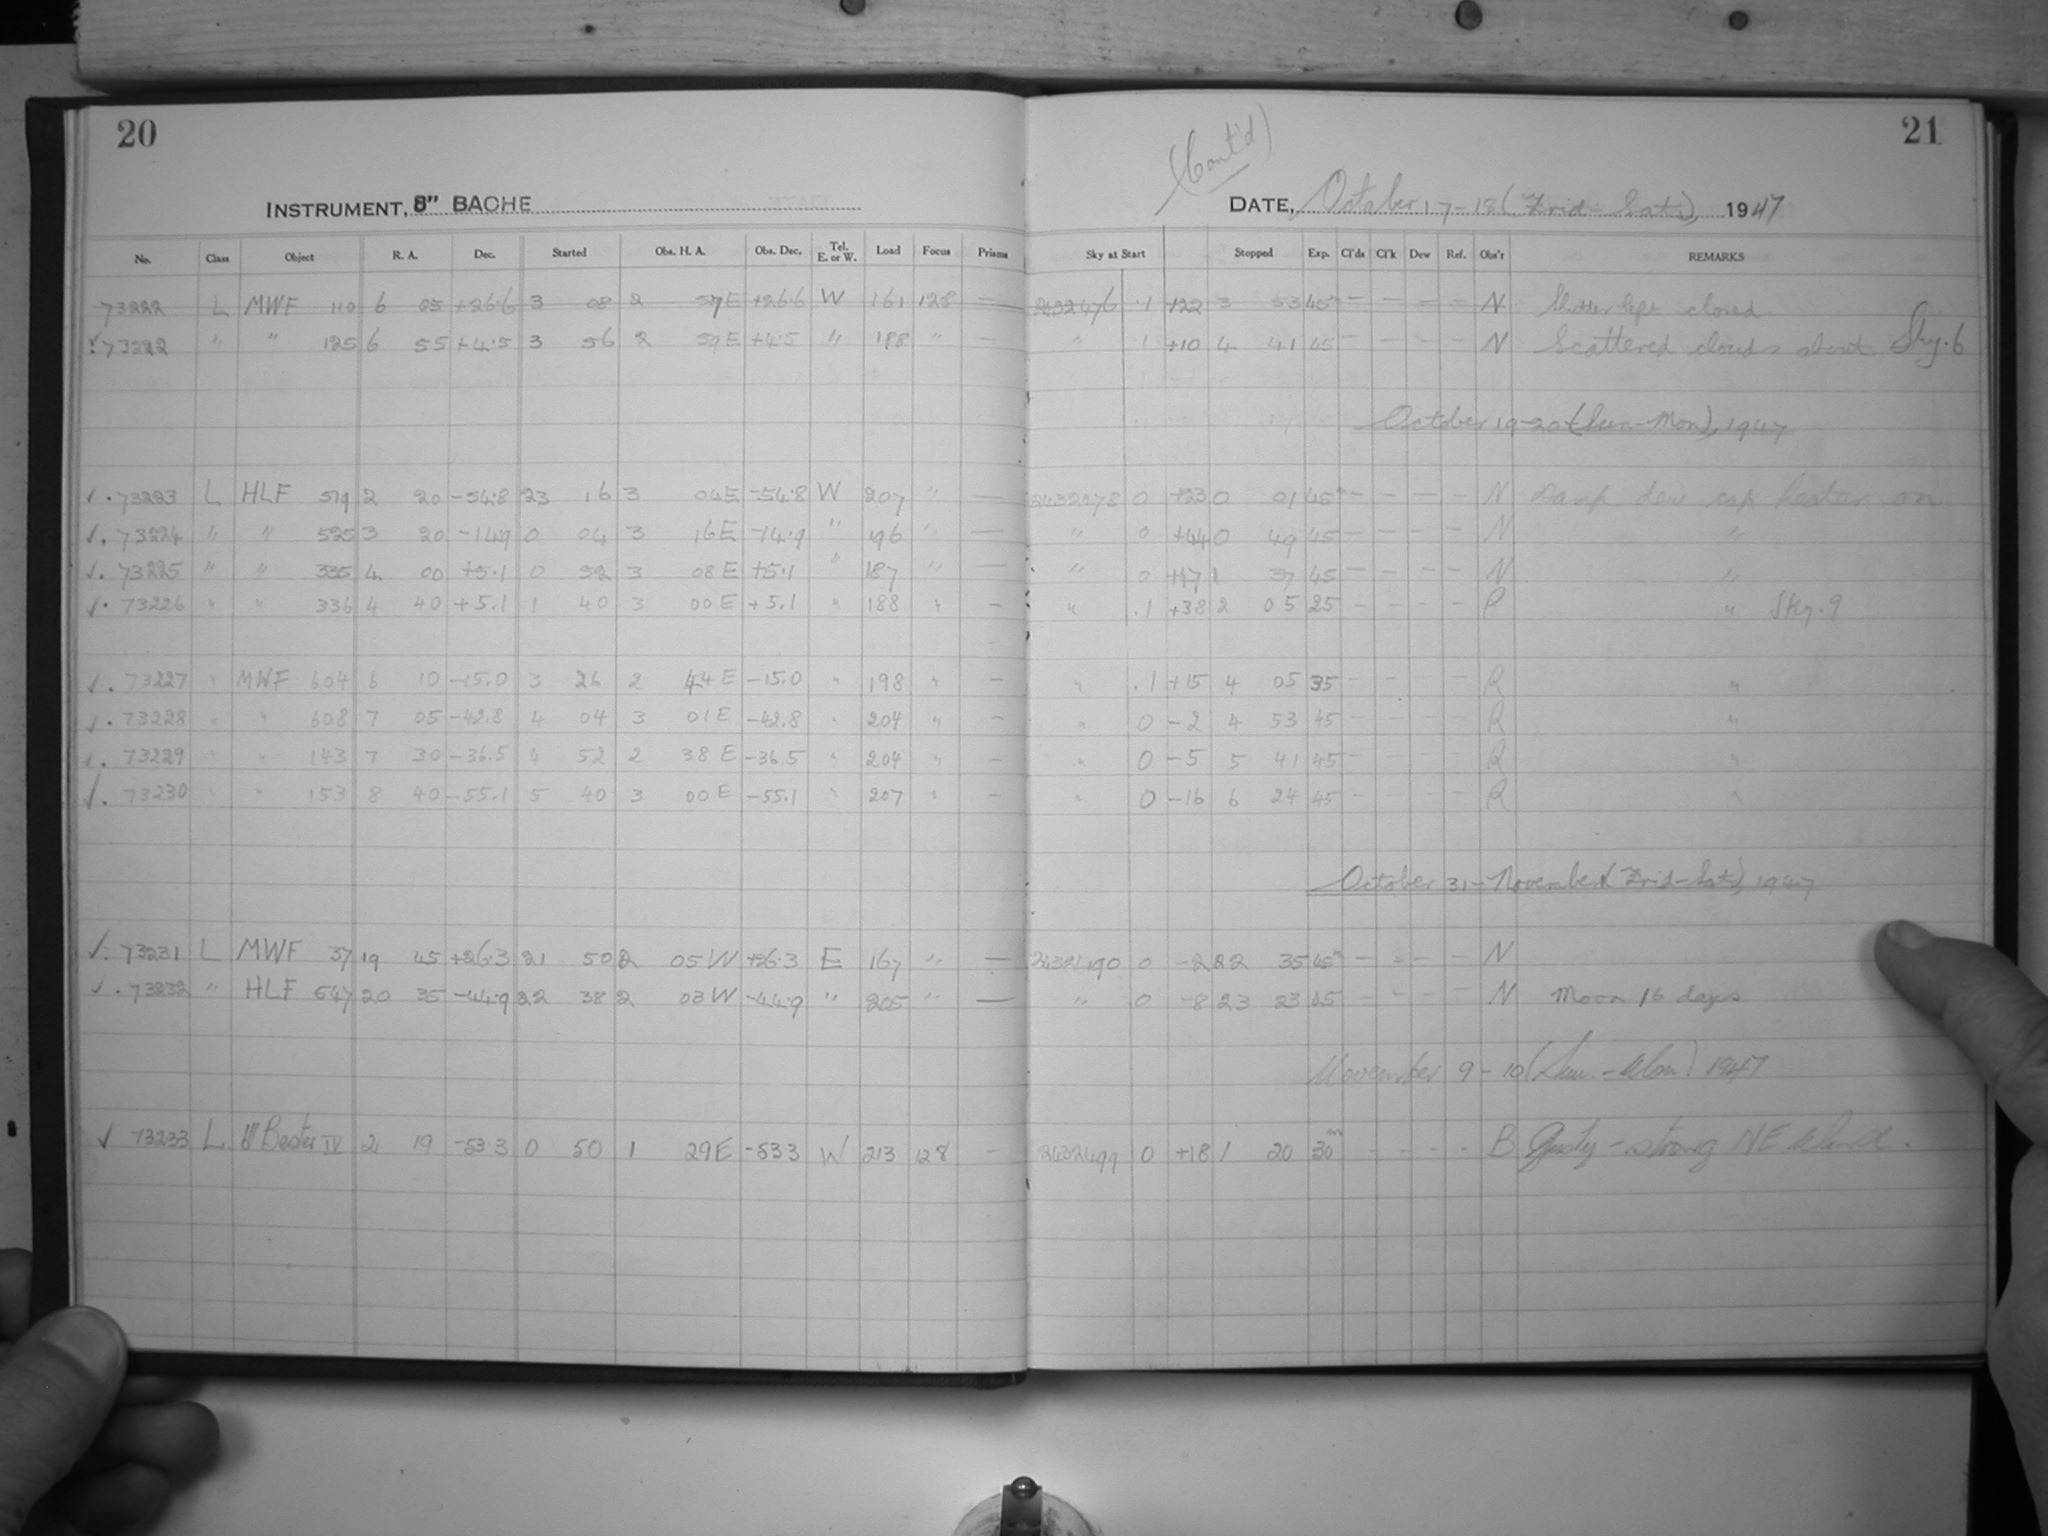 20
21
(Cont'd)
INSTRUMENT, 8" BACHE
DATE, October 17-18 (Frid-Sat), 1947
No. Class Object R. A. Dec. Started Obs. H. A. Obs. Dec. Tel. E. or W. Load Focus Prisms Sky at Start Stopped Exp. Cl'ds Cl'k Dew Ref. Obs'r REMARKS
73222 L MWF 110 6 05 +26.6 3 08 2 57 E +26.6 W 161 128 — 2432476 .1 +22 3 53 45 — — — — N Shutter left closed
✓. 73222 " " 125 6 55 +4.5 3 56 2 59 E +4.5 " 188 " — " 1 +10 4 41 45 — — — — N Scattered clouds about Sky.6
October 19-20 (Sun-Mon), 1947
✓. 73223 L HLF 519 2 20 -54.8 23 16 3 04 E -54.8 W 207 " — 2432478 0 +23 0 01 45 — — — — N Damp dew cap heater on
✓. 73224 " " 525 3 20 -14.9 0 04 3 16 E -14.9 " 196 " — " 0 +44 0 49 45 — — — — N "
✓. 73225 " " 335 4 00 +5.1 0 52 3 08 E +5.1 " 187 " — " 0 +47 1 37 45 — — — — N "
✓. 73226 " " 336 4 40 +5.1 1 40 3 00 E +5.1 " 188 " — " .1 +38 2 05 25 — — — — R " Sky.9
✓. 73227 " MWF 604 6 10 -15.0 3 26 2 44 E -15.0 " 198 " — " .1 +15 4 05 35 — — — — R "
✓. 73228 " " 608 7 05 -42.8 4 04 3 01 E -42.8 " 204 " — " 0 -2 4 53 45 — — — — R "
✓. 73229 " " 143 7 30 -36.5 4 52 2 38 E -36.5 " 204 " — " 0 -5 5 41 45 — — — — R "
✓. 73230 " " 153 8 40 -55.1 5 40 3 00 E -55.1 " 207 " — " 0 -16 6 24 45 — — — — R "
October 31-November 1 (Frid-Sat), 1947
✓. 73231 L MWF 37 19 45 +26.3 21 50 2 05 W +26.3 E 167 " — 0 -2 22 35 45 — — — — N
✓. 73232 " HLF 547 20 35 -44.9 22 38 2 03 W -44.9 " 205 " — " 0 -8 23 23 45 — — — — N Moon 16 days
November 9-10 (Sun.-Mon) 1947
✓ 73233 L Bester IV 2 19 -53.3 0 50 1 29 E -53.3 W 213 128 — 2432499 0 +18 1 20 30m - - - - B Gusty - strong NE Wind.